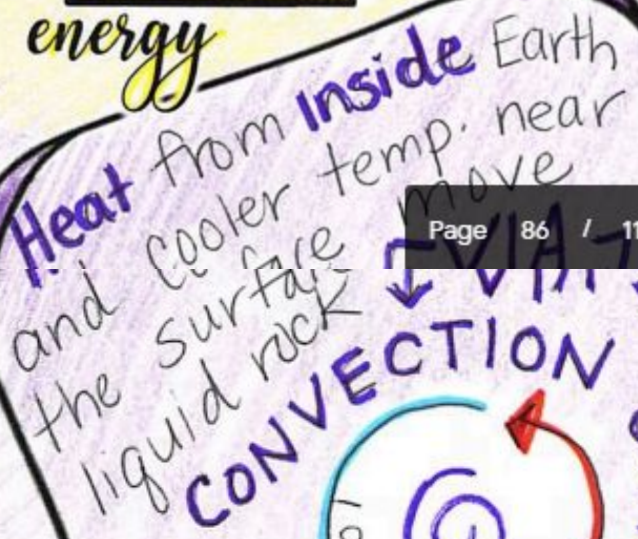 energy
Heat from Inside Earth
and cooler temp. near
the surface move
liquid rock
VIA
CONVECTION
Page 86 / 11